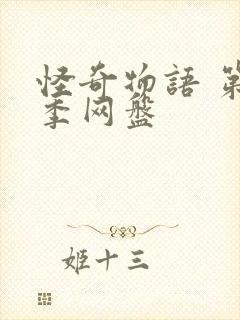 怪奇物語 第
季网盤
姬十三